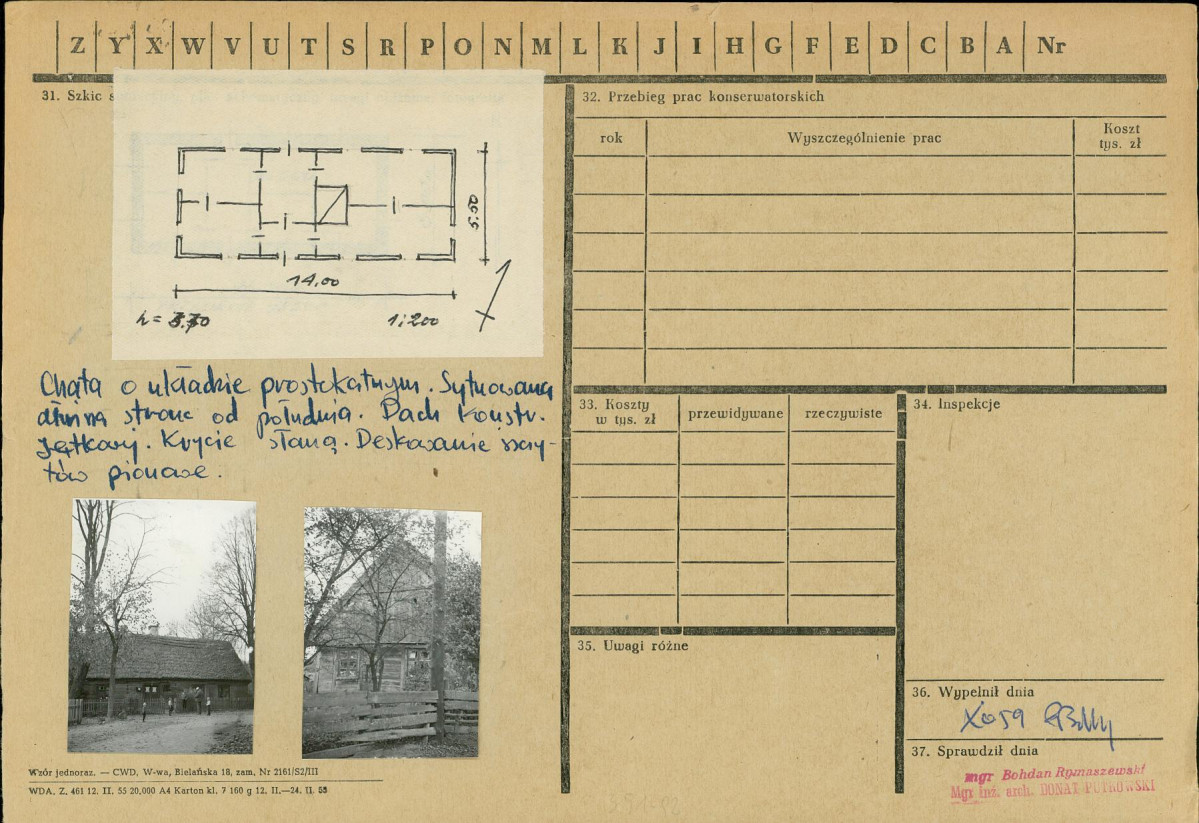 Z Y X W V U T S R P O N M L K J I H G F E D C B A Nr
31. Szkic s
14,00
1:200
Chata o układzie prostokątnym. Sytuowana
dłuższą stroną od południa. Dach konstr.
jętkowej. Krycie słomą. Deskowanie szczy-
tów pionowe.
Wzór jednoraz. — CWD, W-wa, Bielańska 18, zam. Nr 2161/S2/III
WDA. Z. 461 12. II. 55 20,000 A4 Karton kl. 7 160 g 12. II.—24. II. 55
32. Przebieg prac konserwatorskich
rok Wyszczególnienie prac Koszt
tys. zł
33. Koszty
w tys. zł
przewidywane rzeczywiste
34. Inspekcje
35. Uwagi różne
36. Wypełnił dnia
X 059
37. Sprawdził dnia
mgr Bohdan Rymaszewski
Mgr inż. arch. DONAT PUTKOWSKI